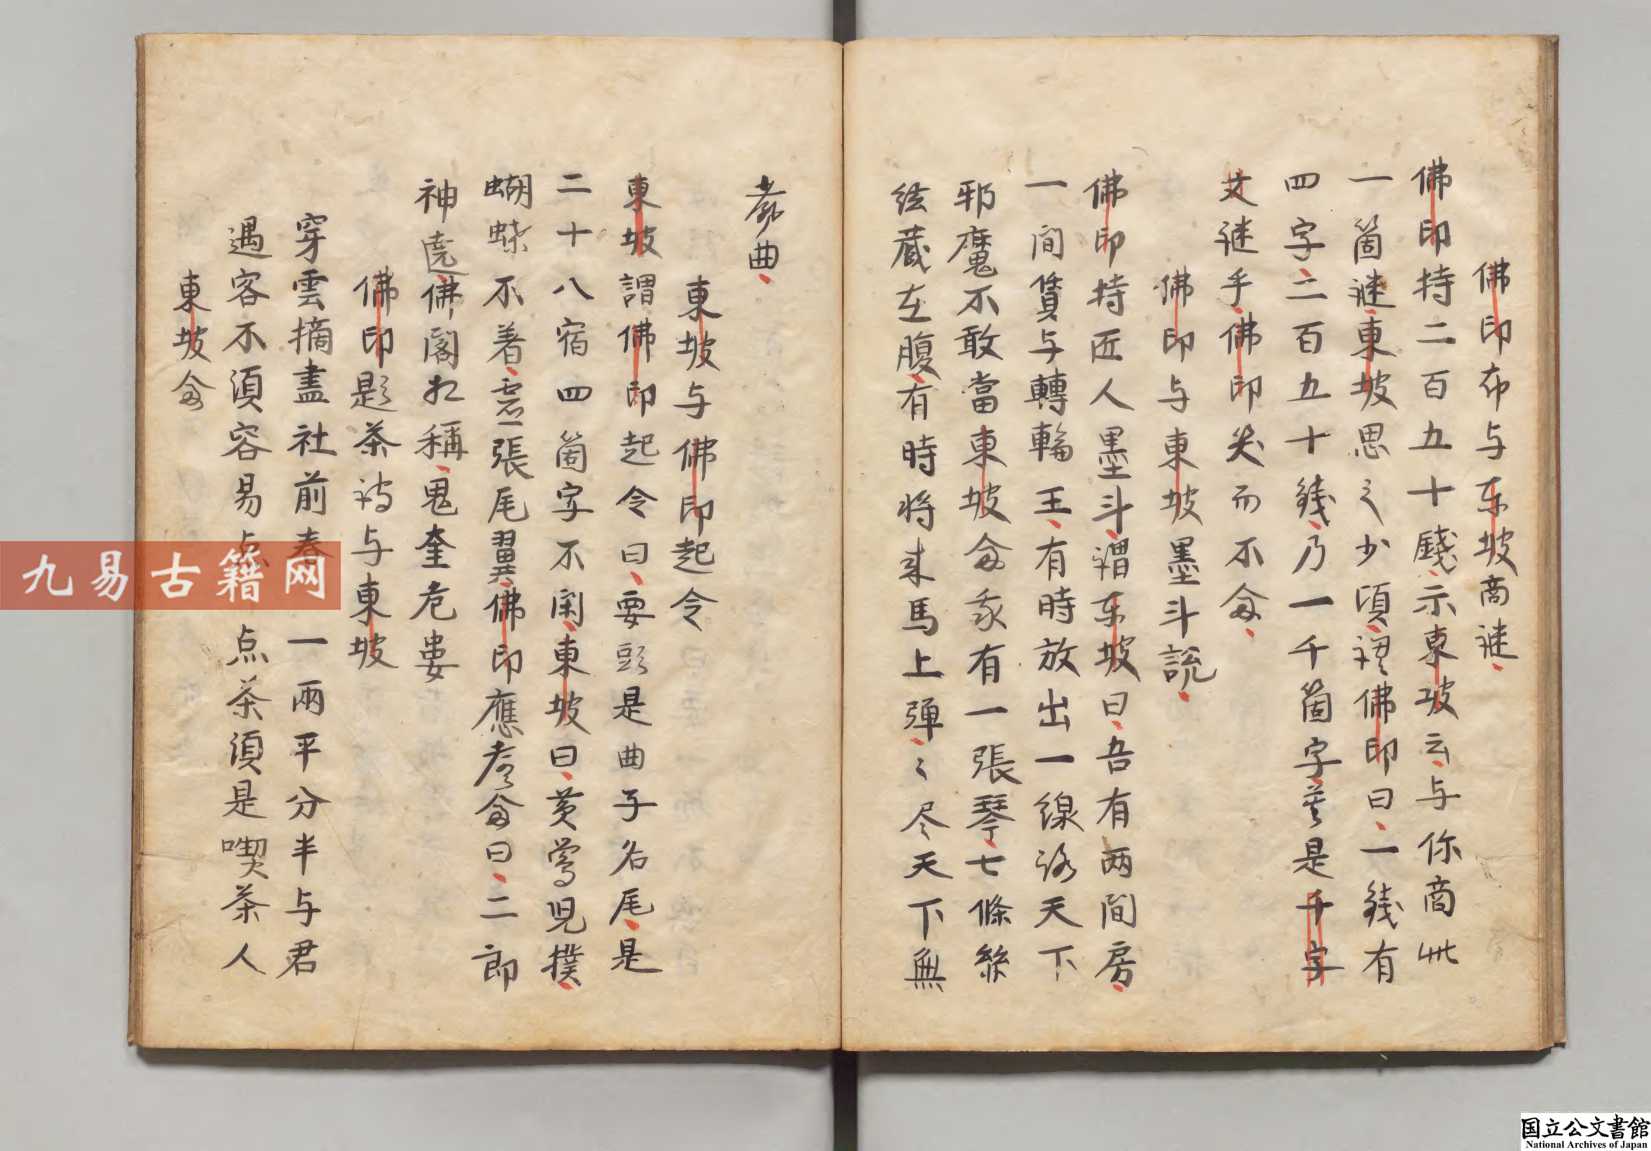 佛印布与东坡商谜
佛印持二百五十錢示東坡云与你商此
一箇謎東坡思之少頃謂佛印曰一錢有
四字二百五十錢乃一千箇字莫是千字
文謎乎佛印笑而不答
佛印与東坡墨斗說
佛印持匠人墨斗謂东坡曰吾有两間房
一間賃与轉輪王有時放出一線路天下
邪魔不敢當東坡答我有一張琴七條絲
絃藏在腹有時將來馬上彈〻尽天下無
聲曲
東坡与佛印起令
東坡謂佛印起令曰要頭是曲子名尾是
二十八宿四箇字不闲東坡曰黄鶯児撲
蝴蝶不着虚張尾翼佛印應聲答曰二郎
神遶佛閣相稱鬼奎危婁
佛印題茶詩与東坡
穿雲摘盡社前春一兩平分半与君
遇客不須容易点点茶須是喫茶人
東坡答
九易古籍网
国立公文書館
National Archives of Japan